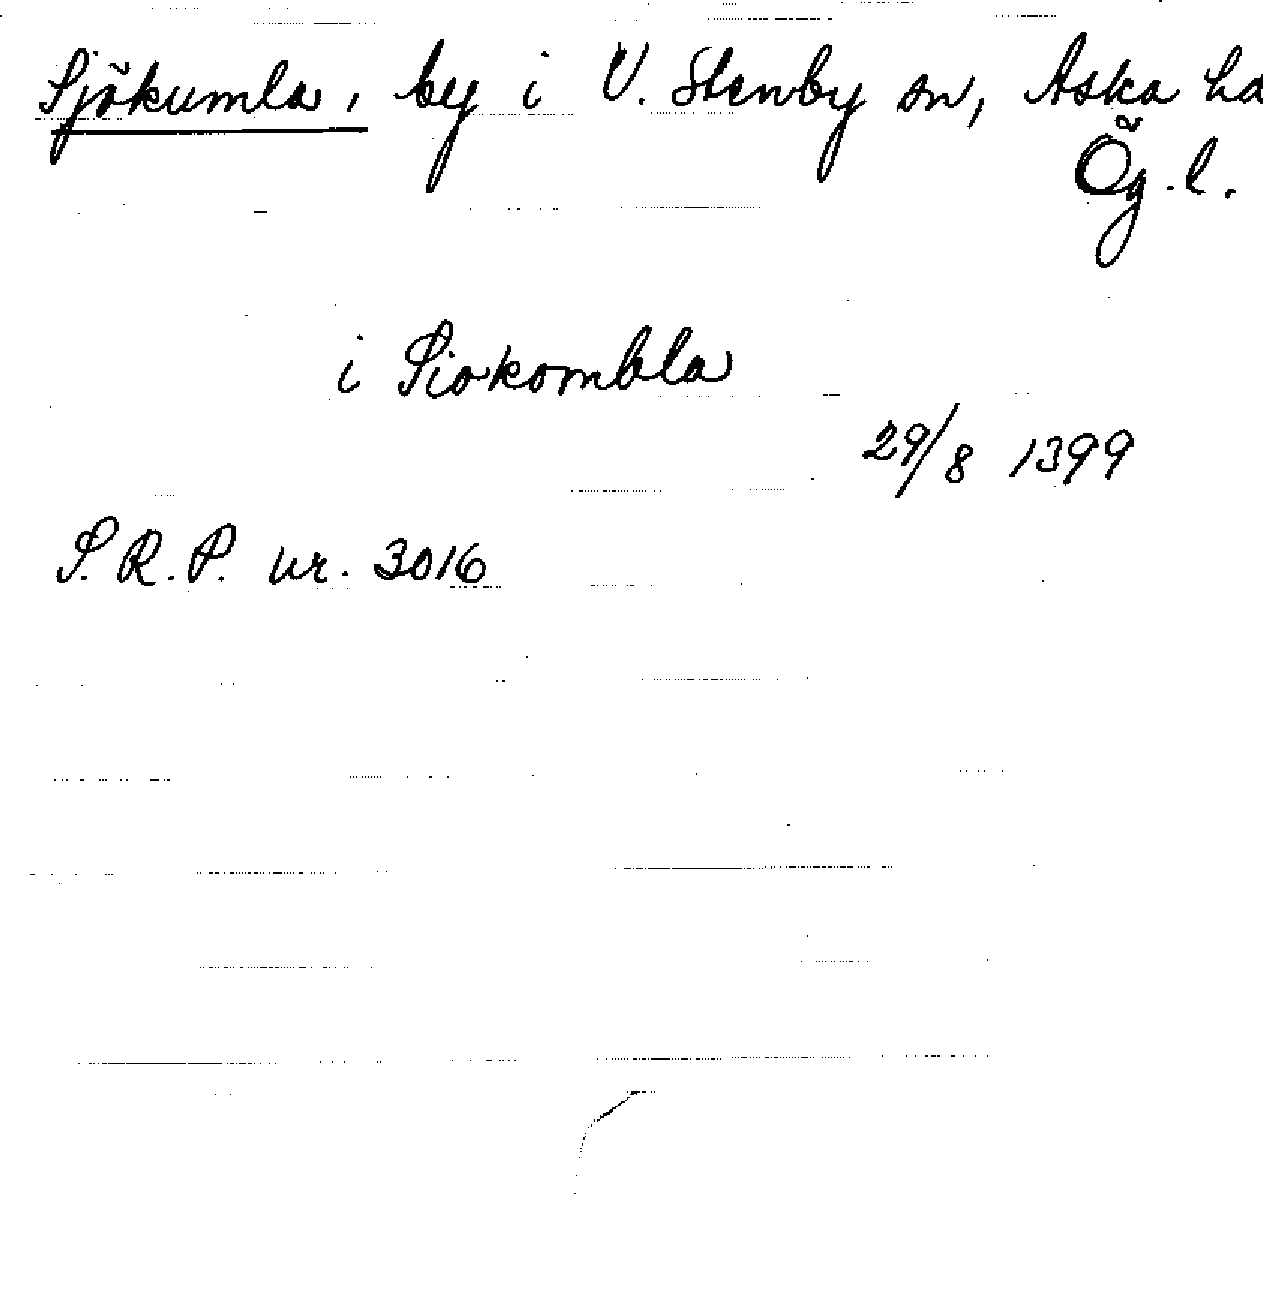 Sjökumla, by i V. Stenby sn, Aska hd
Ög.l.
i Siokombla
29/8 1399
S.R.P. nr. 3016